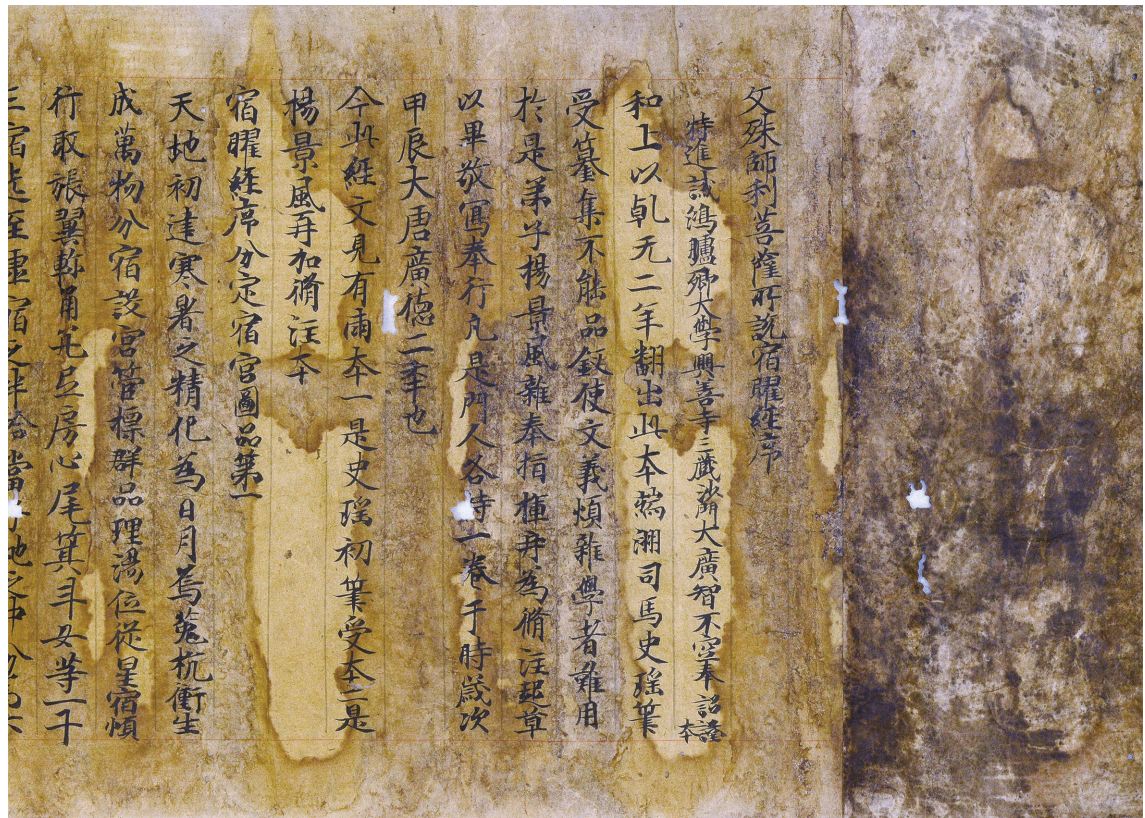 文殊師利菩薩所説宿曜經序
特進試鴻臚卿大學興善寺三藏沙門大廣智不空奉詔譯本
和上以乹元二年翻出此本端州司馬史瑶筆
受纂集不能品叙使文義煩雜學者難用
於是弟子楊景風雜奉指揮再為脩注起草
以畢敬寫奉行凡是門人各持一卷于時歲次
甲辰大唐廣德二年也
今此經文見有兩本一是史瑶初筆受本二是
楊景風再加脩注本
宿曜經序分定宿宮圖品第一
天地初建寒暑之精化為日月烏菟抗衝生
成萬物分宿設宮管標群品理湯位從星宿煩
行取張翼軫角亢互房心尾箕斗女等一十
三宿迄至虛宿之半恰當子地之中分為六